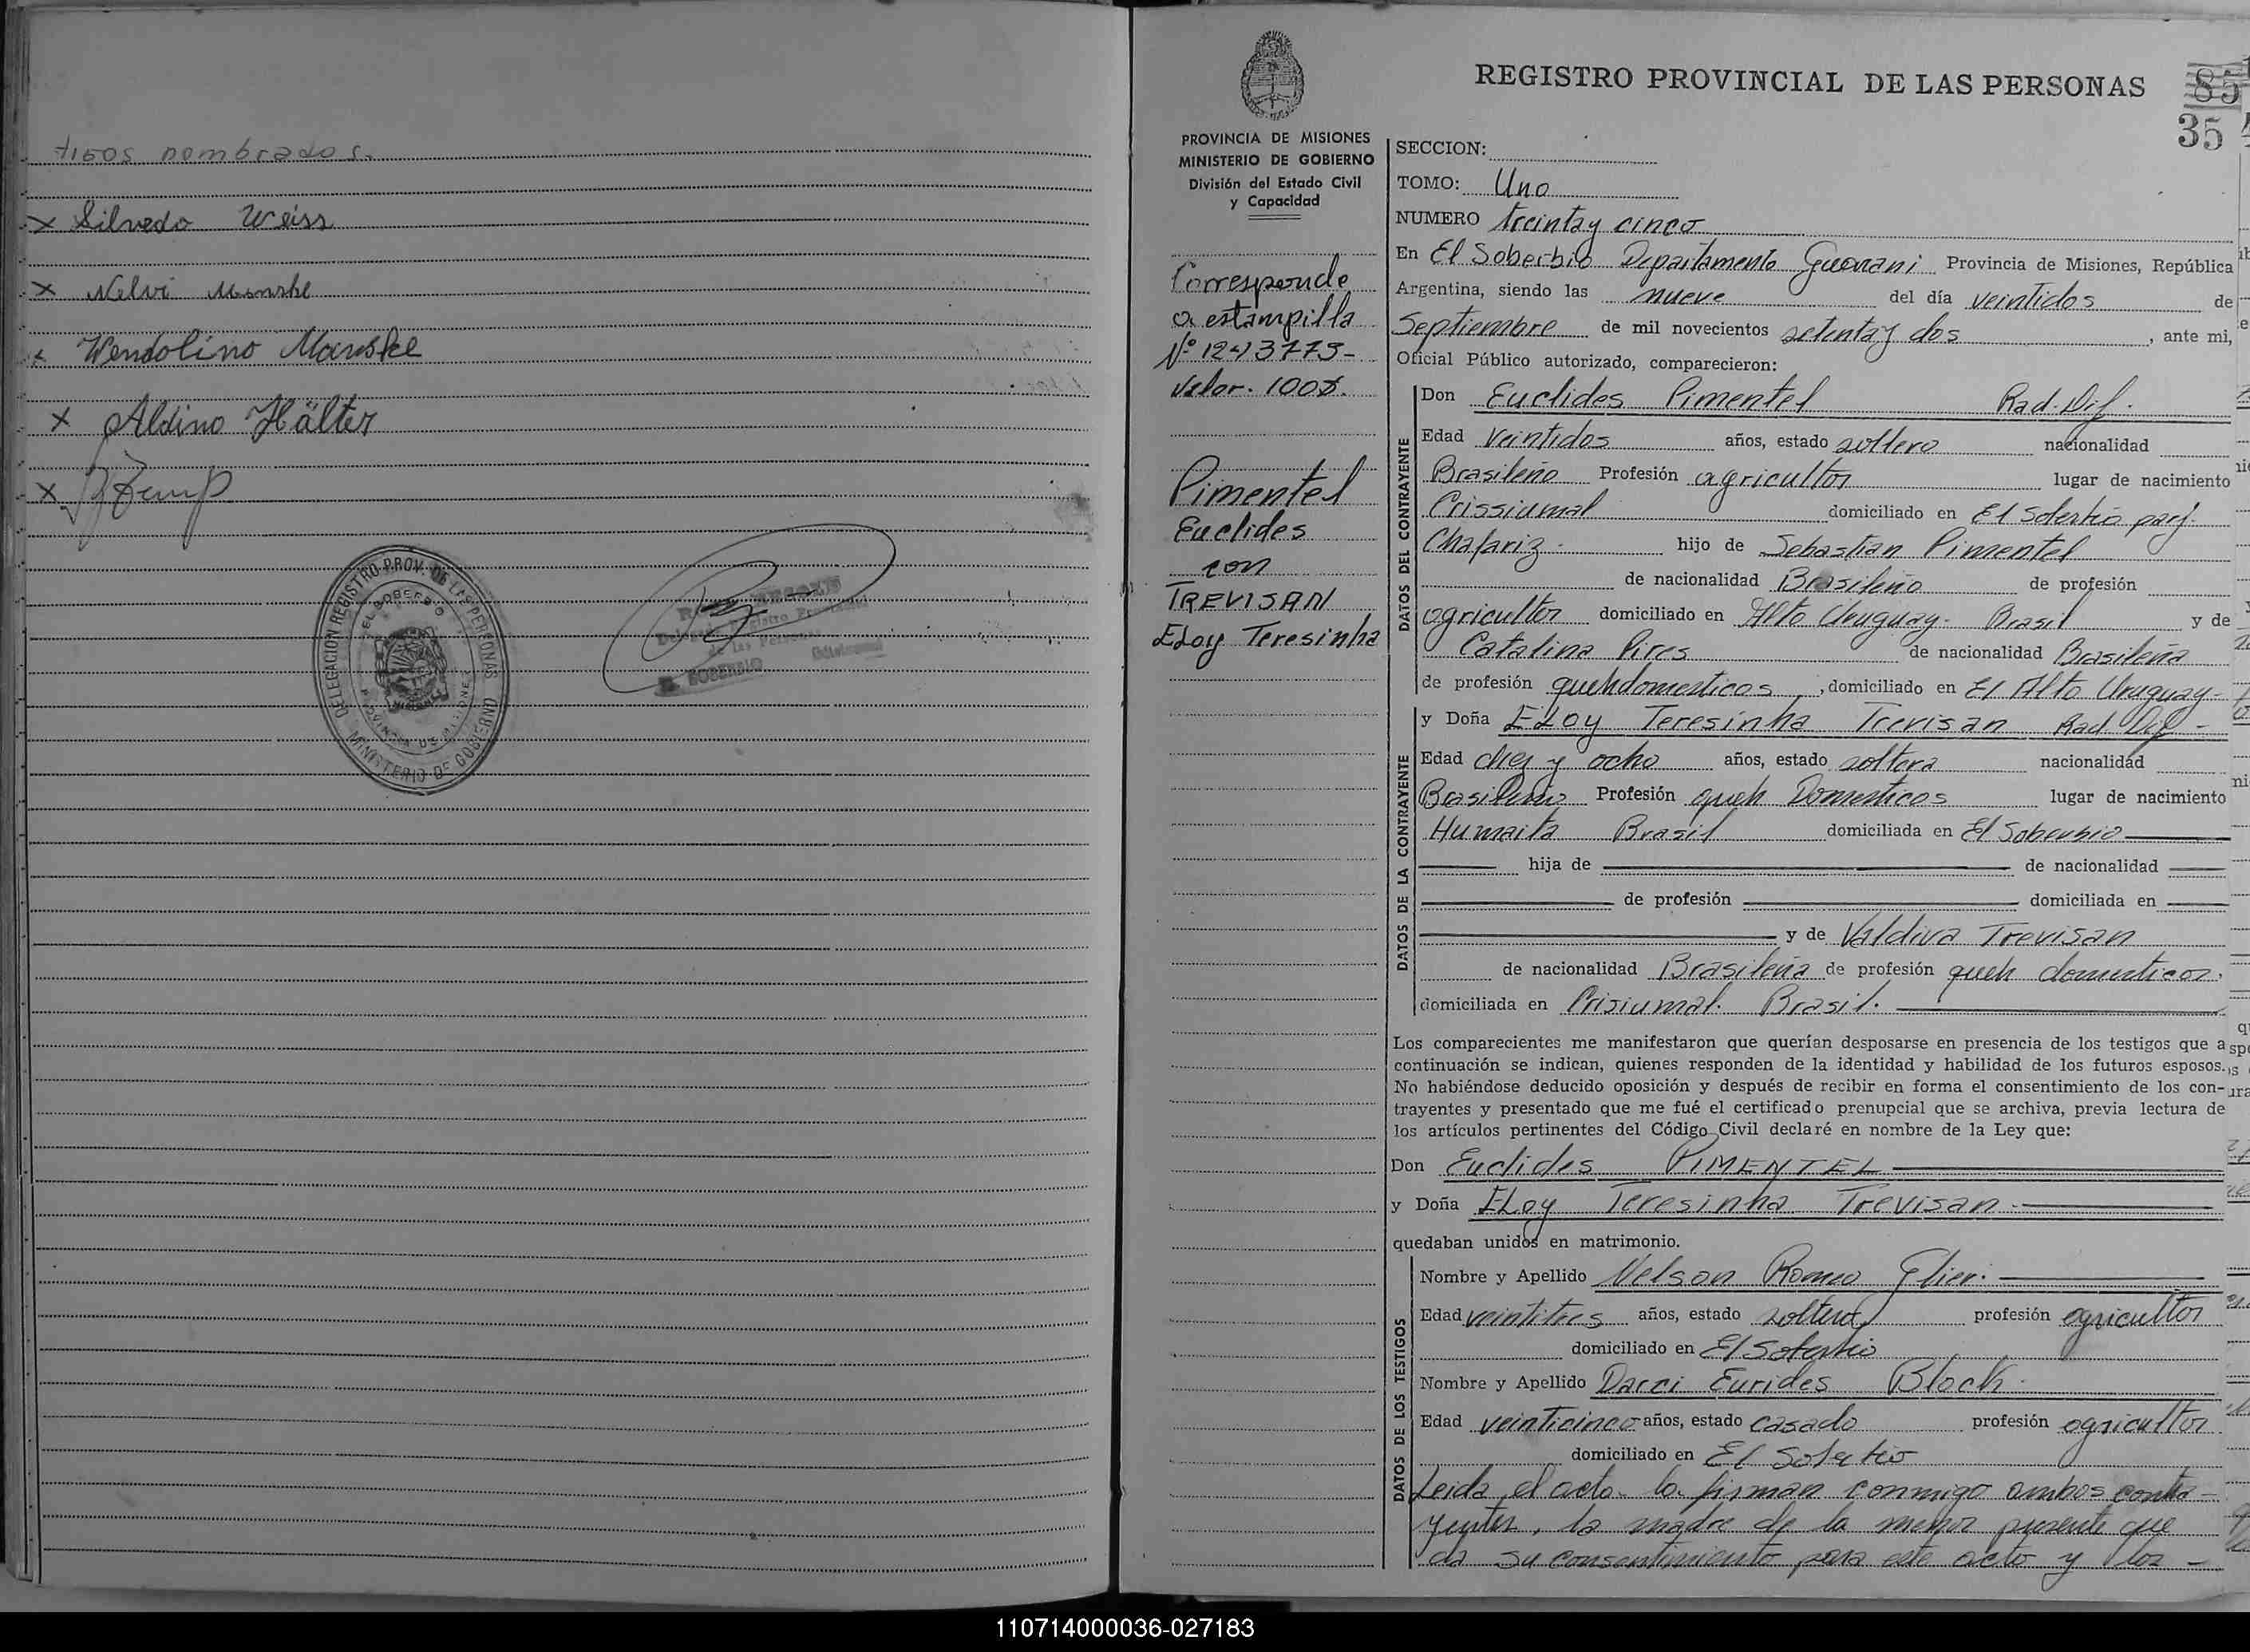 tigos nombrados.
x Silvedo Weiss
x Nelvi
x Wendolino Manske
x Aldino Hälter
x
DELEGACION REGISTRO PROV. DE LAS PERSONAS
EL SOBERBIO
PROVINCIA DE MISIONES
MINISTERIO DE GOBIERNO
EL SOBERBIO
REGISTRO PROVINCIAL DE LAS PERSONAS
85
35
PROVINCIA DE MISIONES
MINISTERIO DE GOBIERNO
División del Estado Civil
y Capacidad
Corresponde
a estampilla
Nº 1243773-
Valor. 100$.
Pimentel
Euclides
con
TREVISAN
ELoy Teresinha
SECCION:
TOMO: Uno
NUMERO treinta y cinco
En El Soberbio Departamento Guarani Provincia de Misiones, República
Argentina, siendo las nueve del día veintidos de
Septiembre de mil novecientos setenta y dos, ante mi,
Oficial Público autorizado, comparecieron:
DATOS DEL CONTRAYENTE
Don Euclides Pimentel Rad. Dif.
Edad Veintidos años, estado soltero nacionalidad
Brasileño Profesión agricultor lugar de nacimiento
Crissiumal domiciliado en El Soberbio parj.
Chafariz. hijo de Sebastian Pimentel
de nacionalidad Brasileño de profesión
agricultor domiciliado en Alto Uruguay- Brasil y de
Catalina Pires de nacionalidad Brasileña
de profesión quehdomesticos, domiciliado en El Alto Uruguay-
DATOS DE LA CONTRAYENTE
y Doña ELoy Teresinha Trevisan Rad Dif-
Edad diez y ocho años, estado soltera nacionalidad
Brasileña Profesión queh Domesticos lugar de nacimiento
Humaita Brasil domiciliada en El Soberbio
hija de de nacionalidad
de profesión domiciliada en
y de Valdiva Trevisan
de nacionalidad Brasileña de profesión queh domesticos.
domiciliada en Crisiumal. Brasil.
Los comparecientes me manifestaron que querían desposarse en presencia de los testigos que a
continuación se indican, quienes responden de la identidad y habilidad de los futuros esposos.
No habiéndose deducido oposición y después de recibir en forma el consentimiento de los con-
trayentes y presentado que me fué el certificado prenupcial que se archiva, previa lectura de
los artículos pertinentes del Código Civil declaré en nombre de la Ley que:
Don Euclides PIMENTEL
y Doña ELoy Teresinha Trevisan
quedaban unidos en matrimonio.
DATOS DE LOS TESTIGOS
Nombre y Apellido Nelson Romeo Glier.
Edad veintitres años, estado soltero profesión agricultor
domiciliado en El Soberbio
Nombre y Apellido Darci Eurides Block.
Edad veinticinco años, estado casado profesión agricultor
domiciliado en El Soberbio
Leida el acta la firman conmigo ambos contra-
yentes, la madre de la menor presente que
da su consentimiento para este acto y los-
110714000036-027183